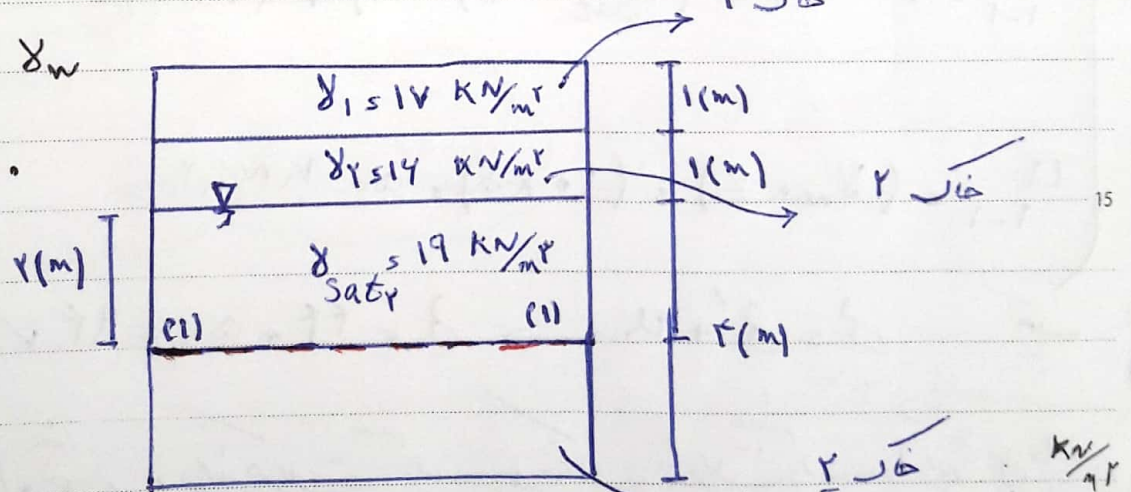 خاک ۱
γw
γ۱ = ۱۷ KN/m۳
۱(m)
γ۲ = ۱۶ KN/m۳
۱(m)
خاک ۲
15
۲(m)
γsat۲ = ۱۹ KN/m۳
(۱)
(۱)
۴(m)
خاک ۲
KN/m۳